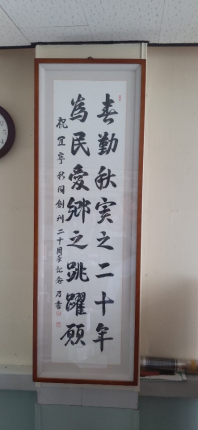 春勤秋実之二十年
為民愛郷之跳躍願
祝 宜寧新聞創刊二十周年記念